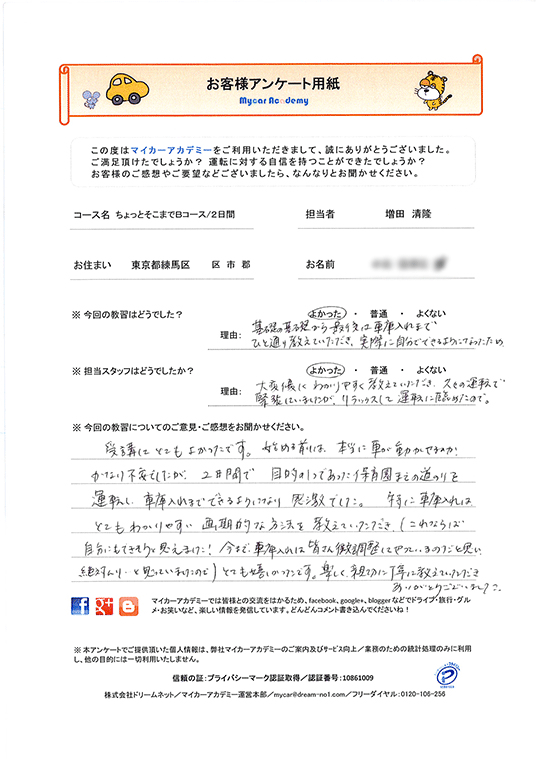 お客様アンケート用紙
Mycar Academy
この度はマイカーアカデミーをご利用いただきまして、誠にありがとうございました。
ご満足頂けたでしょうか？ 運転に対する自信を持つことができたでしょうか？
お客様のご感想やご要望などございましたら、なんなりとお聞かせください。
コース名 ちょっとそこまでBコース/2日間 担当者 増田 清隆
お住まい 東京都練馬区 区 市 郡 お名前
※ 今回の教習はどうでした？ よかった ・ 普通 ・ よくない
理由: 基礎の基礎から最後は車庫入れまで
ひと通り教えていただき、実際に自分でできるようになったため
※ 担当スタッフはどうでしたか？ よかった ・ 普通 ・ よくない
理由: 大変優しくわかりやすく教えていただき、久々の運転で
緊張していましたが、リラックスして運転に臨めたので。
※ 今回の教習についてのご意見・ご感想をお聞かせください。
受講してとてもよかったです。始める前は、本当に車が動かせるのか
かなり不安でしたが、2日間で目的の1つであった保育園までの道のりを
運転し、車庫入れまでできるようになり感激でした。特に車庫入れは
とてもわかりやすい画期的な方法を教えていただき、（これならば
自分にもできそうと思えました！今まで、車庫入れは皆さん微調整してやっているのだと思い
絶対ムリ…と思っていましたので）とても嬉しかったです。楽しく、親切に丁寧に教えていただき
ありがとうございました。
マイカーアカデミーでは皆様との交流をはかるため、facebook、google+、bloggerなどでドライブ・旅行・グル
メ・お笑いなど、楽しい情報を発信しています。どんどんコメント書き込んでくださいね！
※ 本アンケートでご提供頂いた個人情報は、弊社マイカーアカデミーのご案内及びサービス向上／業務のための統計処理のみに利用
し、他の目的には一切利用いたしません。
信頼の証：プライバシーマーク認証取得／認証番号：10861009
株式会社ドリームネット／マイカーアカデミー運営本部／mycar@dream-no1.com／フリーダイヤル：0120-106-256